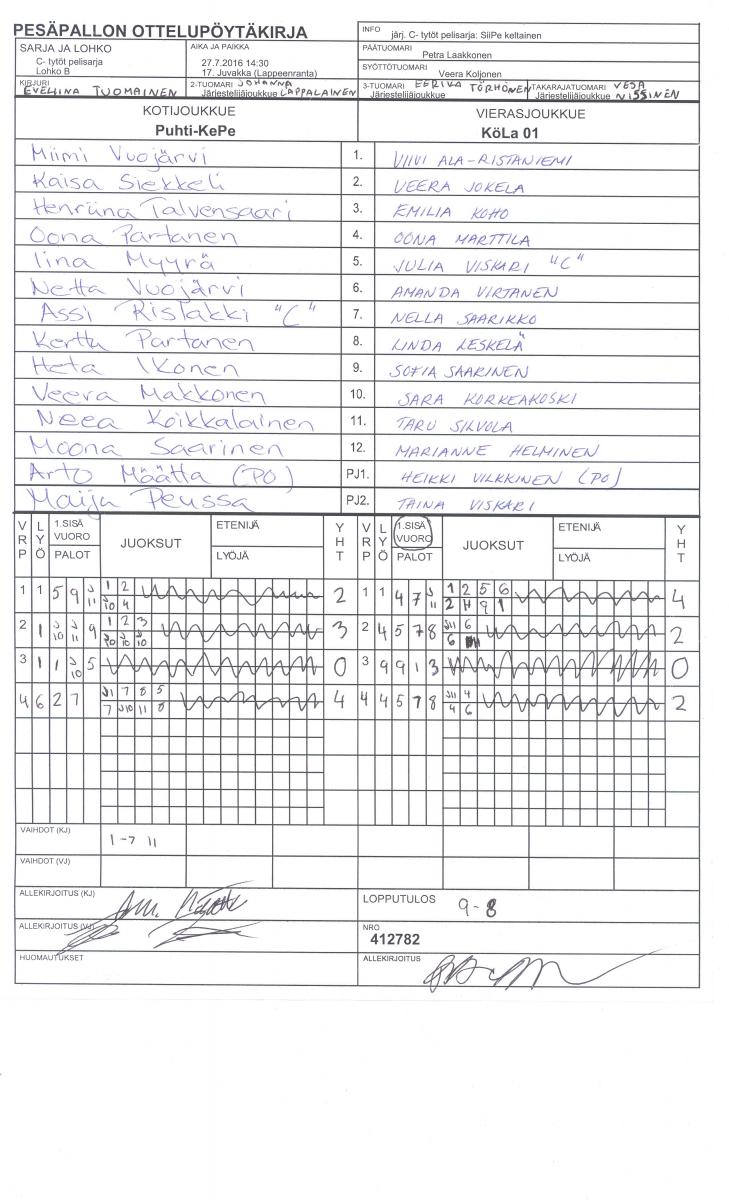 PESÄPALLON OTTELUPÖYTÄKIRJA
INFO järj. C- tytöt pelisarja: SiiPe keltainen
SARJA JA LOHKO
C- tytöt pelisarja
Lohko B
AIKA JA PAIKKA
27.7.2016 14:30
17. Juvakka (Lappeenranta)
PÄÄTUOMARI
Petra Laakkonen
SYÖTTÖTUOMARI
Veera Koljonen
KIRJURI
EVELIINA TUOMAINEN
2-TUOMARI JOHANNA
Järjestelijäjoukkue LAPPALAINEN
3-TUOMARI EERIKA TÖRHÖNEN
Järjestelijäjoukkue
TAKARAJATUOMARI VESA
Järjestelijäjoukkue NISSINEN
KOTIJOUKKUE
Puhti-KePe
VIERASJOUKKUE
KöLa 01
Miimi Vuojärvi 1. VIIVI ALA-RISTANIEMI
Kaisa Siekkeli 2. VEERA JOKELA
Henriina Talvensaari 3. EMILIA KOHO
Oona Partanen 4. OONA MARTTILA
Iina Myyrä 5. JULIA VISKARI "C"
Netta Vuojärvi 6. AMANDA VIRTANEN
Assi Rislakki "C" 7. NELLA SAARIKKO
Kerttu Partanen 8. LINDA LESKELÄ
Heta Ikonen 9. SOFIA SAARINEN
Veera Makkonen 10. SARA KORKEAKOSKI
Neea Koikkalainen 11. TARU SILVOLA
Moona Saarinen 12. MARIANNE HELMINEN
Arto Määtta (PO) PJ1. HEIKKI VILKKINEN (PO)
Maija Peussa PJ2. TAINA VISKARI
VRP LYÖ 1.SISÄ VUORO PALOT JUOKSUT ETENIJÄ LYÖJÄ YHT VRP LYÖ 1.SISÄ VUORO PALOT JUOKSUT ETENIJÄ LYÖJÄ YHT
1 1 5 9 J11 1 2 2 1 1 4 7 J11 1 2 5 6 4
J10 4 2 9 1
2 1 J10 J11 9 1 2 3 3 2 4 5 7 8 J11 6 2
J10 J10 J10 6
3 1 1 J10 5 0 3 9 9 1 3 0
4 6 2 7 J1 7 8 5 4 4 4 5 7 8 J11 4 2
7 J10 11 8 4 6
VAIHDOT (KJ) 1-7 11
VAIHDOT (VJ)
ALLEKIRJOITUS (KJ)
LOPPUTULOS 9-8
ALLEKIRJOITUS (VJ)
NRO
412782
HUOMAUTUKSET
ALLEKIRJOITUS